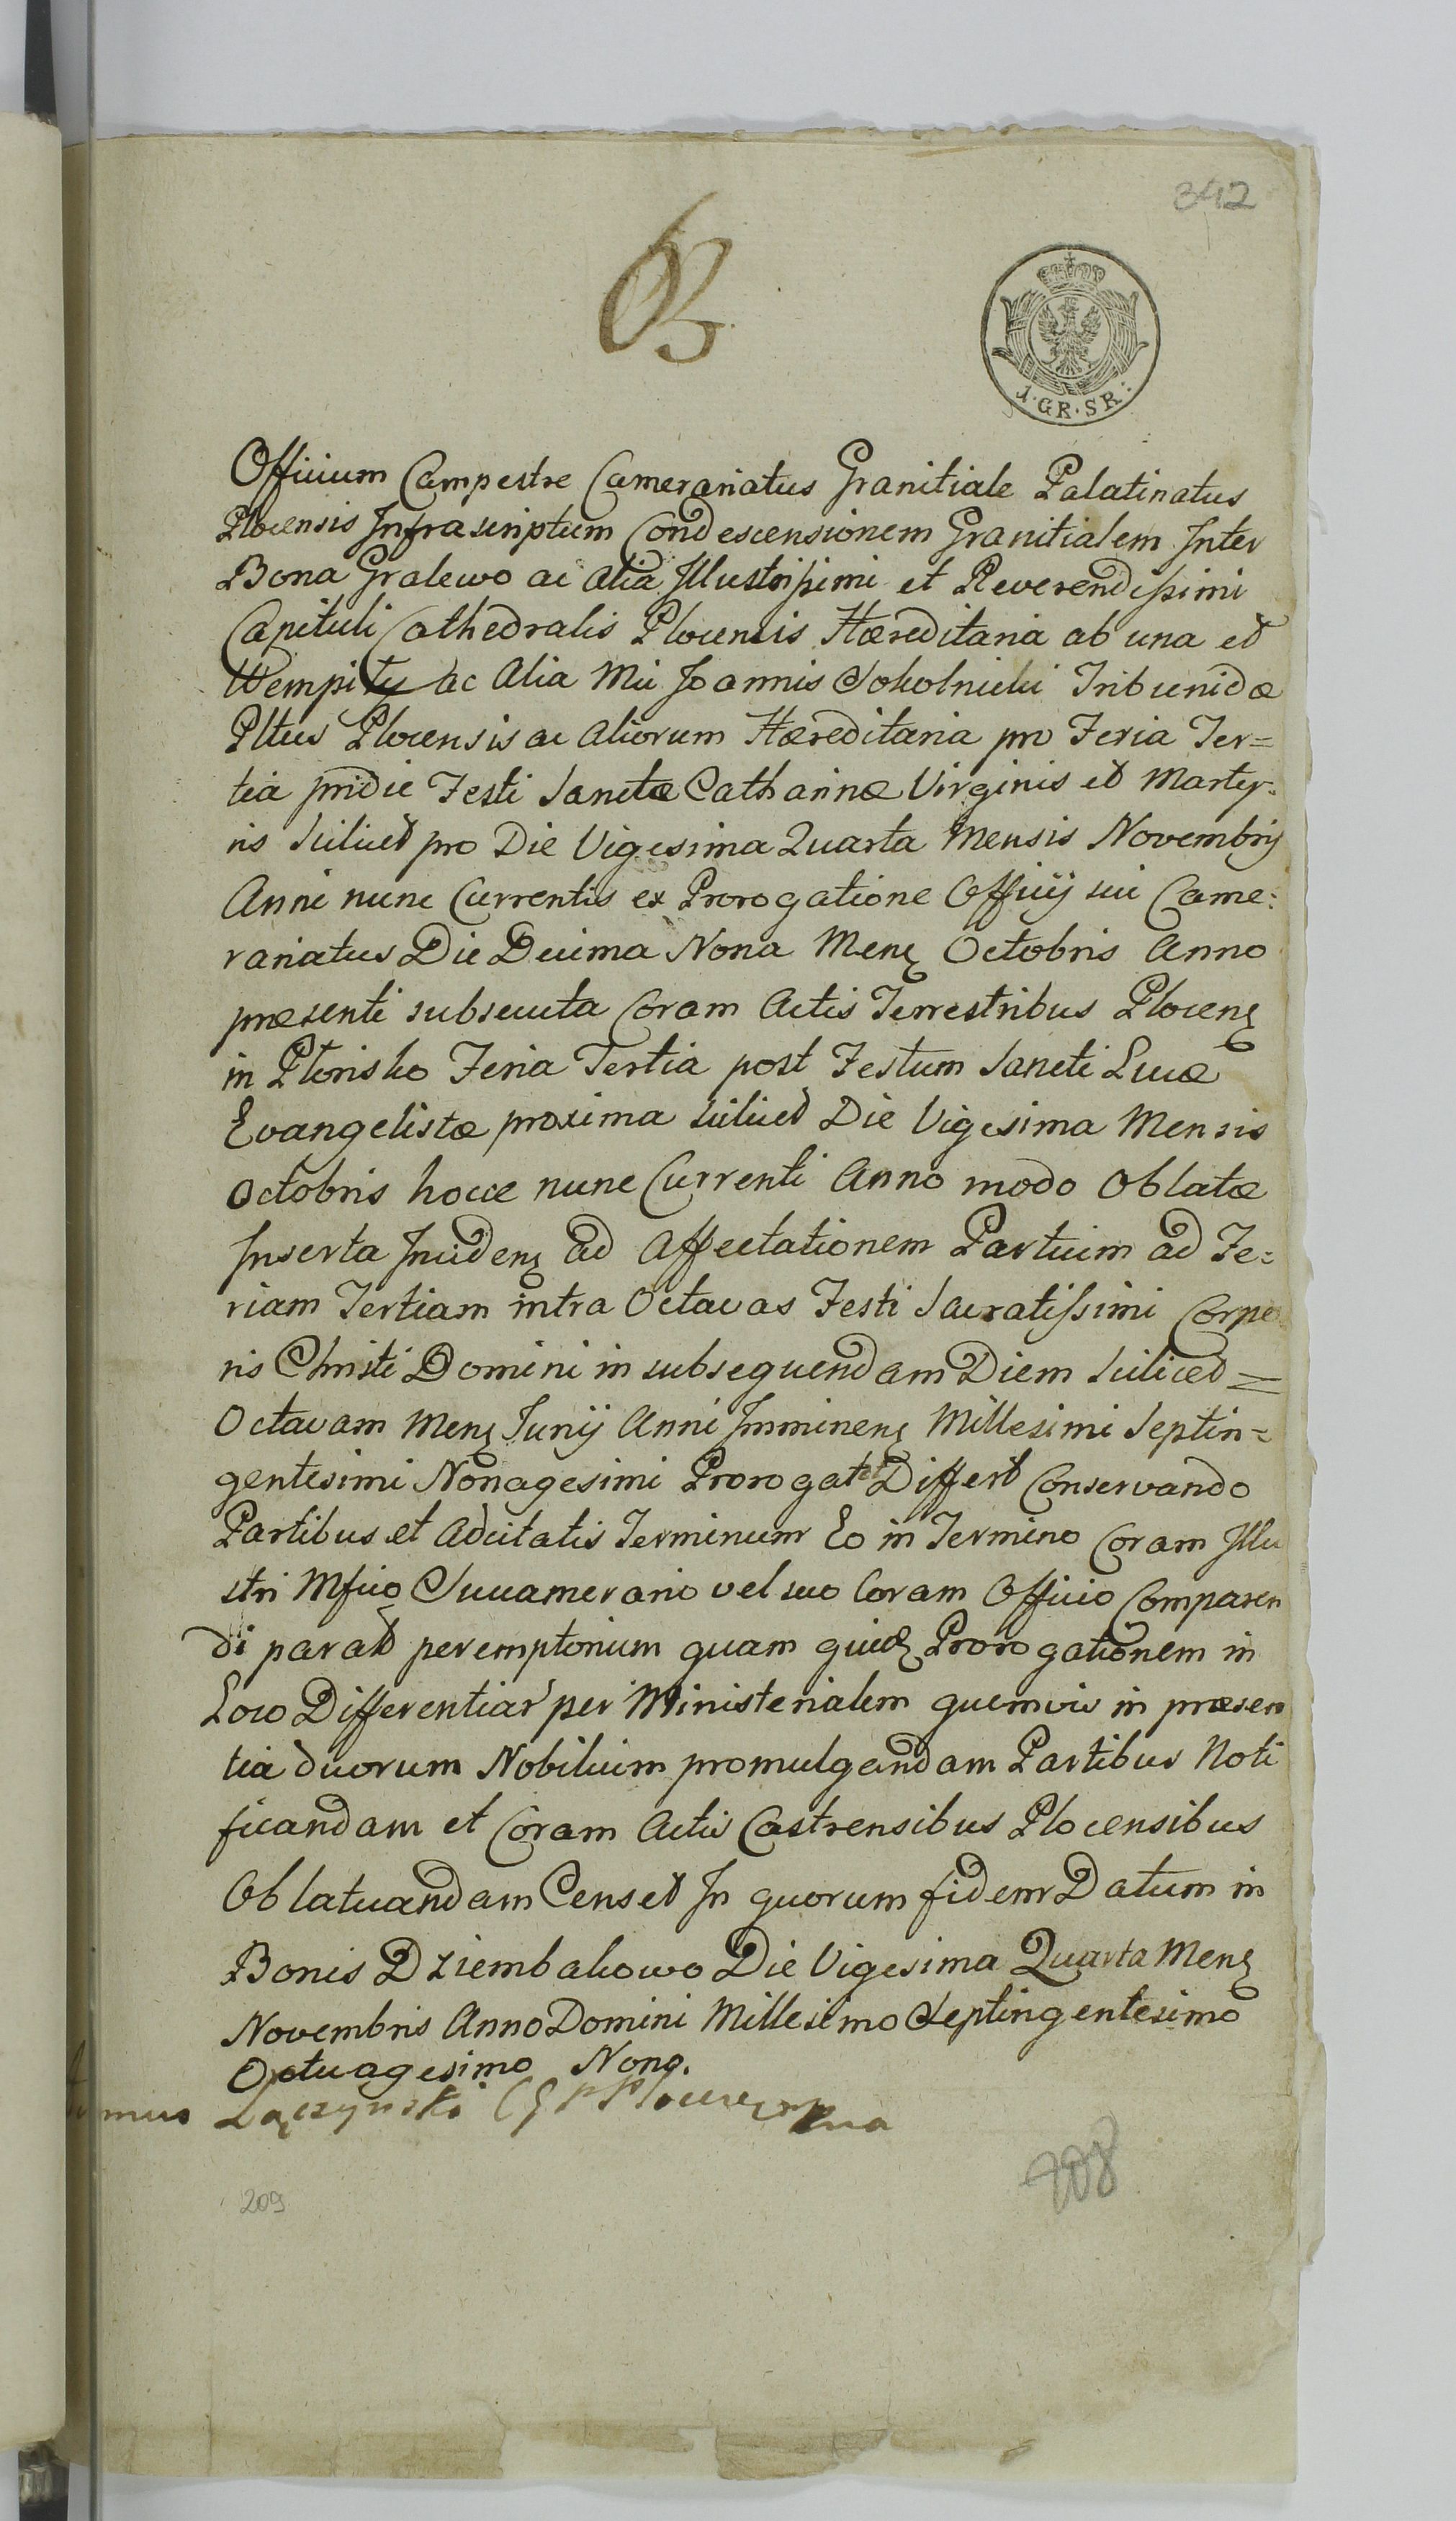 342
63
1·GR·SR:
Officium Campestre Camerariatus Granitiale Palatinatus
Plocensis Infrascriptum Condescensionem Granitialem Inter
Bona Gralewo ac alia Illustrissimi et Reverendissimi
Capituli Cathedralis Plocensis Hæreditaria ab una et
Wempiły ac Alia Mci Joannis Sokolnicki Tribunidæ
Pltus Plocensis ac aliorum Hæreditaria pro Feria Ter=
tia pridie Festi Sanctæ Catharinæ Virginis et Marty:
ris Scilicet pro Die Vigesima Quarta Mensis Novembris
Anni nunc Currentis ex Prorogatione Officij sui Came:
rariatus Die Decima Nona Mens Octobris Anno
præsenti subsecuta Coram Actis Terrestribus Plocens
in Płońsko Feria Tertia post Festum Sancti Lucæ
Evangelistæ proxima scilicet Die Vigesima Mensis
Octobris hocce nunc Currenti Anno modo Oblatæ
Inserta Inciden ad Affectationem Partium ad Fe=
riam Tertiam intra Octavas Festi Sacratissimi Corpo
ris Christi Domini in subsequendam Diem Scilicet =
Octavam Mens Junij Anni Imminens Millesimi Septin=
gentesimi Nonagesimi Prorogat et Differt Conservando
Partibus et Adcitatis Terminum Eo in Termino Coram Illu
stri Mfico Succamerario vel suo Coram Officio Comparen
di parat peremptorium quam quid Prorogationem in
Loco Differentiar per Ministerialem quemvis in præsen
tia duorum Nobilium promulgandam Partibus Noti
ficandam et Coram Actis Castrensibus Plocensibus
Oblatuandam Censet In quorum fidem Datum in
Bonis Dziembakowo Die Vigesima Quarta Mens
Novembris Anno Domini Millesimo Septingentesimo
Octuagesimo Nono.
Łączyński
209
208